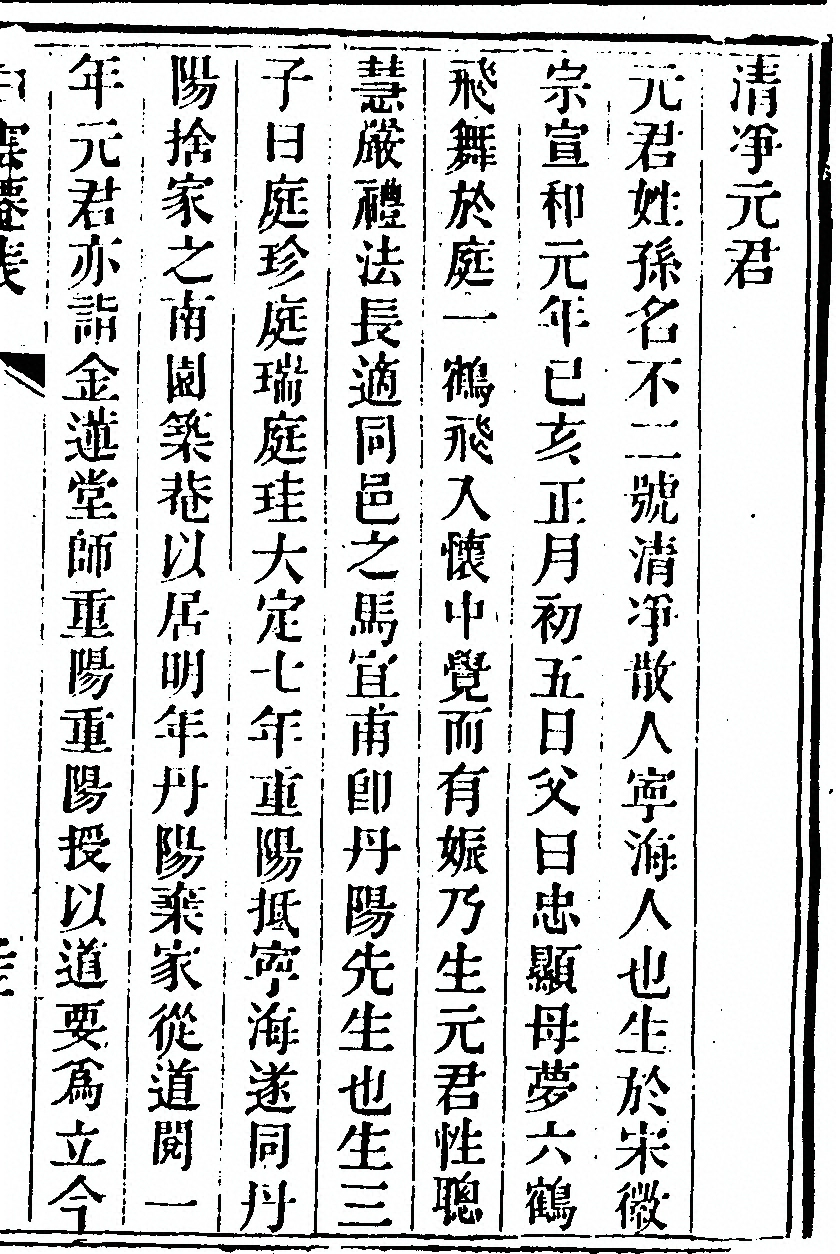 清凈元君
元君姓孫名不二號清凈散人寧海人也生於宋徽
宗宣和元年已亥正月初五日父曰忠顯母夢六鶴
飛舞於庭一鶴飛入懷中覺而有娠乃生元君性聰
慧嚴禮法長適同邑之馬宜甫卽丹陽先生也生三
子曰庭珍庭瑞庭珪大定七年重陽抵寧海遂同丹
陽捨家之南園築菴以居明年丹陽棄家從道閱一
年元君亦詣金蓮堂師重陽重陽授以道要爲立今